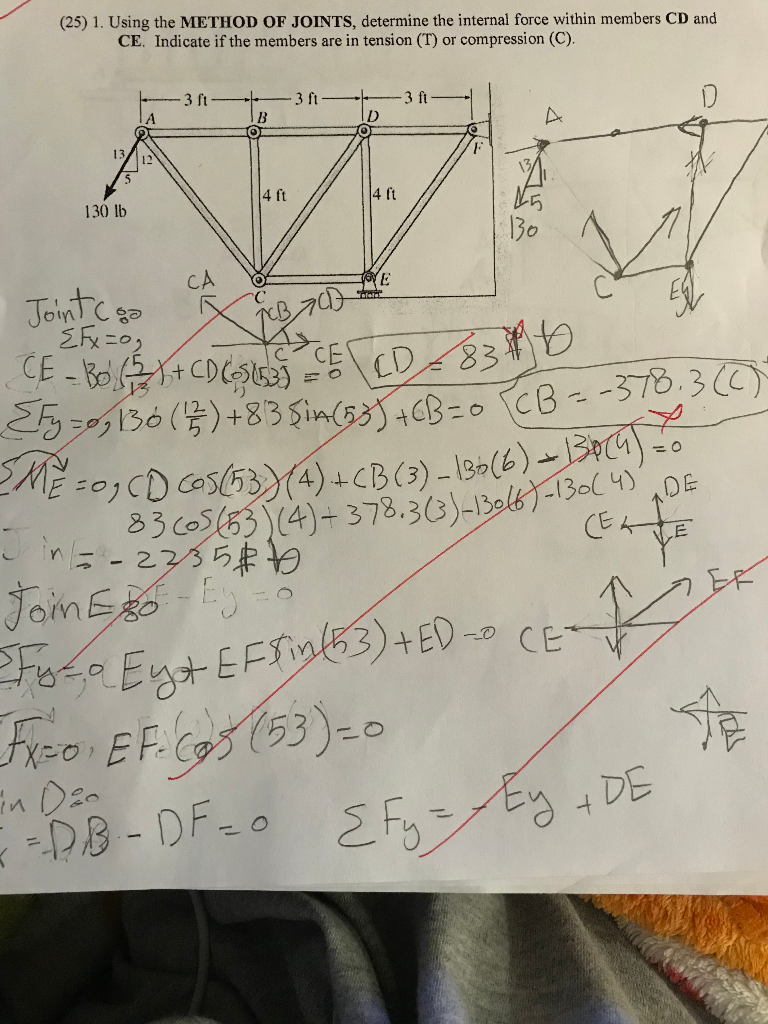 (25) 1. Using the METHOD OF JOINTS, determine the internal force within members CD and
CE. Indicate if the members are in tension (T) or compression (C).
3 ft 3 ft 3 ft
A B D F
13 12
5
130 lb
4 ft 4 ft
C E
A D
13
5
130
C Ey
Joint C
CA CB CD
C CE
ΣFx=0,
CE - 130(5/13) + CD cos(53) = 0
CD = 83 #
ΣFy=0, 130(12/5) + 83 sin(53) + CB = 0
CB = -378.3 (C)
ΣME=0, CD cos(53)(4) + CB(3) - 130(6) - 130(4) = 0
83 cos(53)(4) + 378.3(3) - 130(6) - 130(4)
= -2235 #
DE
CE E
Join E
- Ey = 0
EF
CE
ΣFy=0 Ey + EF sin(53) + ED = 0
Fx=0, EF cos(53) = 0
E
in D
= DB - DF = 0
ΣFy = - Ey + DE